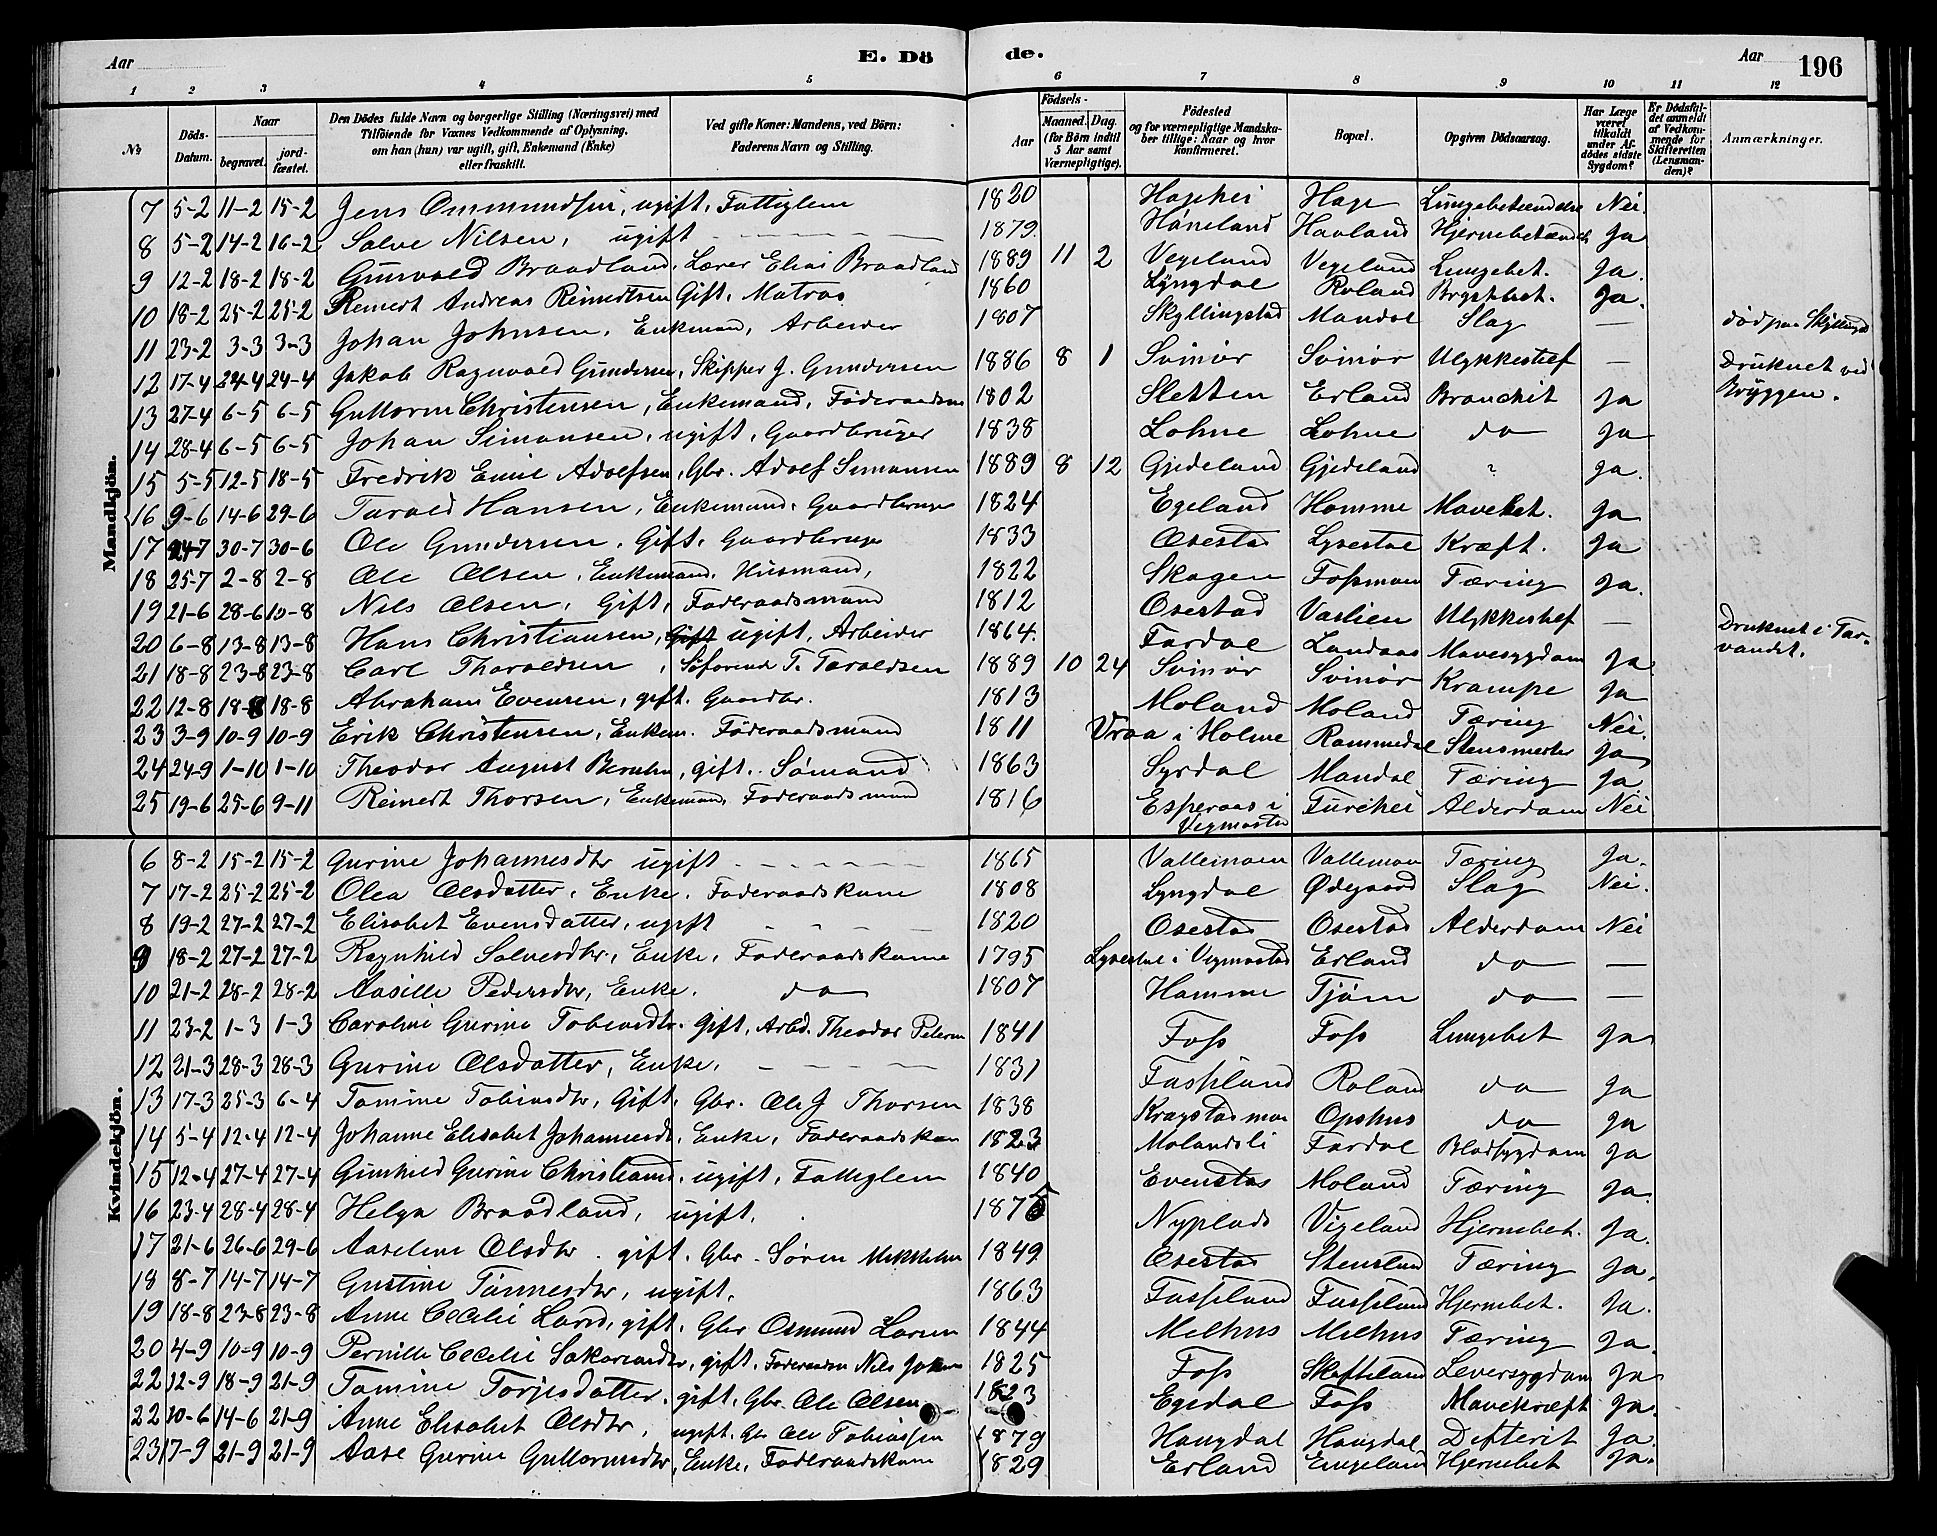 Aar E. Dö de. Aar 196
1 2 3 4 5 6 7 8 9 10 11 12
No Döds-Datum. Naar begravet. jordfæstet. Den Dödes fulde Navn og borgerlige Stilling (Næringsvei) med Tilföiende for Voxnes Vedkommende af Oplysning, om han (hun) var ugift, gift, Enkemand (Enke) eller fraskilt. Ved gifte Koner: Mandens, ved Börn: Faderens Navn og Stilling. Aar Födsels- Maaned. Dag. (for Börn indtil 5 Aar samt Værnepligtige). Födested og for værnepligtige Mandskaber tillige: Naar og hvor konfirmeret. Bopæl. Opgiven Dödsaarsag. Har Læge været tilkaldt under Afdödes sidste Sygdom? Er Dödsfaldet anmeldt af Vedkommende for Skifteretten (Lensmanden)? Anmærkninger.
Mandkjön.
7 5-2 11-2 15-2 Jens Ommundsen, ugift, Fattiglem 1820 Hagehei Hage Lungebetændelse Nei.
8 5-2 14-2 16-2 Salve Nilsen, ugift 1879. Høneland Havland Hjernebetændelse Ja
9 12-2 18-2 18-2 Gunvald Braadland. Lærer Elias Braadland 1889 11 2 Vegeland Vegeland Lungebet. Ja.
10 18-2 25-2 25-2 Reinert Andreas Reinertsen Gift. Matros 1860 Lyngdal Roland Brystbet. Ja.
11 23-2 3-3 3-3 Johan Johnsen, Enkemand, Arbeider 1807 Skyllingstad Mandal Slag — död paa Skyllingst
12 17-4 24-4 24-4 Jakob Ragnvald Gundersen, Skipper J. Gundersen 1886 8 1 Svinör Svinör Ulykkestilf — Druknet ved Bryggen.
13 27-4 6-5 6-5 Guttorm Christensen, Enkemand, Föderaadsm 1802 Sletten Erland Bronchit Ja
14 28-4 6-5 6-5 Johan Simonsen, ugift, Gaardbruger 1838 Lohne Lohne do Ja
15 5-5 12-5 18-5 Fredrik Emil Adolfsen, Gbr. Adolf Simonsen 1889 8 12 Gjedeland Gjedeland ? Ja.
16 9-6 14-6 29-6 Tarald Hansen, Enkemand. Gaardbruger 1824 Egeland Homme Mavebet. Ja
17 24-7 30-7 30-6 Ole Gundersen. Gift. Gaardbruger 1833 Osestad Lysestøl Kræft. Ja
18 25-7 2-8 2-8 Ole Olsen, Enkemand. Husmand, 1822 Skagen Fossmoen Tæring Ja.
19 21-6 28-6 10-8 Nils Olsen, Gift, Föderaadsmand 1812 Osestad Vaslien Ulykkestilf — Druknet i Tarvandet.
20 6-8 13-8 13-8 Hans Christiansen, Gift ugift, Arbeider 1864. Fardal Landaas Mavesygdom Ja
21 18-8 23-8 23-8 Carl Tharaldsen, T. Taraldsen 1889 10 24 Svinör Svinör Krampe Ja
22 12-8 18-8 18-8 Abraham Evensen, gift. Gaardbr. 1813 Moland Moland Tæring Nei.
23 3-9 10-9 10-9 Erik Christensen, Enkem. Föderaadsmand 1811 Vraa i Holme Rommedal Stensmerter Ja
24 24-9 1-10 1-10 Theodor August Bernhn, gift. Sömand 1863 Syrdal Mandal Tæring Ja
25 19-6 25-6 9-11 Reinert Thorsen, Enkemand, Föderaadsmand 1816 Esperaas i Vegmostad Furehei Alderdom Nei
Kvindekjön.
6 8-2 15-2 15-2 Gurine Johannesdtr ugift 1865 Vallemoen Vallemoen Tæring Ja.
7 17-2 25-2 25-2 Olea Olsdatter. Enke. Föderaadskone 1808 Lyngdal Ødegaard Slag Nei.
8 19-2 27-2 27-2 Elisabet Evensdatter, ugift 1820 Osestad Osestad Alderdom Nei
9 18-2 27-2 27-2 Ragnhild Salvesdtr, Enke, Föderaadskone 1795 Lysestøl i Vegmostad Erland do —
10 21-2 28-2 28-2 Aasille Pedersdtr, Enke. do 1807 Homme Tjøm do —
11 23-2 1-3 1-3 Caroline Gurine Tobiasdtr. Gift, Arbd. Theodor Petersen 1841 Foss Foss Lungebet Ja
12 21-3 28-3 28-3 Gurine Olsdatter, Enke. 1831 Fasseland Roland do Ja
13 17-3 25-3 6-4 Tomine Tobiasdtr, Gift, Gbr. Ole J Thorsen 1838 Kragstasmoe Opshus do Ja
14 5-4 12-4 12-4 Johanne Elisabet Johannesdt. Enke, Föderaadskone 1823 Molandsli Fardal Blodsygdom Ja
15 12-4 27-4 27-4 Gunhild Gurine Christiansd. ugift, Fattiglem 1840 Evenstad Moland Tæring Ja.
16 23-4 28-4 28-4 Helga Braadland, ugift. 1875 Nyplads Vigeland Hjernebet. Ja.
17 21-6 26-6 29-6 Aaselene Olsdtr. gift. Gbr. Sören Mikkelsen 1849 Osestad Stensland Tæring Ja.
18 8-7 14-7 14-7 Gustine Tönnesdtr, ugift. 1863 Fasseland Fasseland Hjernebet. Ja.
19 18-8 23-8 23-8 Anne Cecilie Larsd, gift. Gbr Osmund Larsen 1844 Melhus Melhus Tæring Ja.
20 4-9 10-9 10-9 Pernille Cecilie Sakariasdtr, gift, Föderaadsm Nils Johnsen 1825 Foss Skofteland Leversygdom Ja
22 12-9 18-9 21-9 Tomine Torjesdatter, gift. Gbr. Ole Olsen 1823 Egedal Foss Mavekræft Ja.
22 10-6 14-6 21-9 Anne Elisabet Olsdtr, ugift. Gbr Ole Tobiassen 1879 Haugdal Haugdal Difterit Ja.
23 17-9 21-9 21-9 Aase Gurine Guttormsdtr, Enke, Föderaadskone 1829 Erland Eingeland Hjernebet Ja.